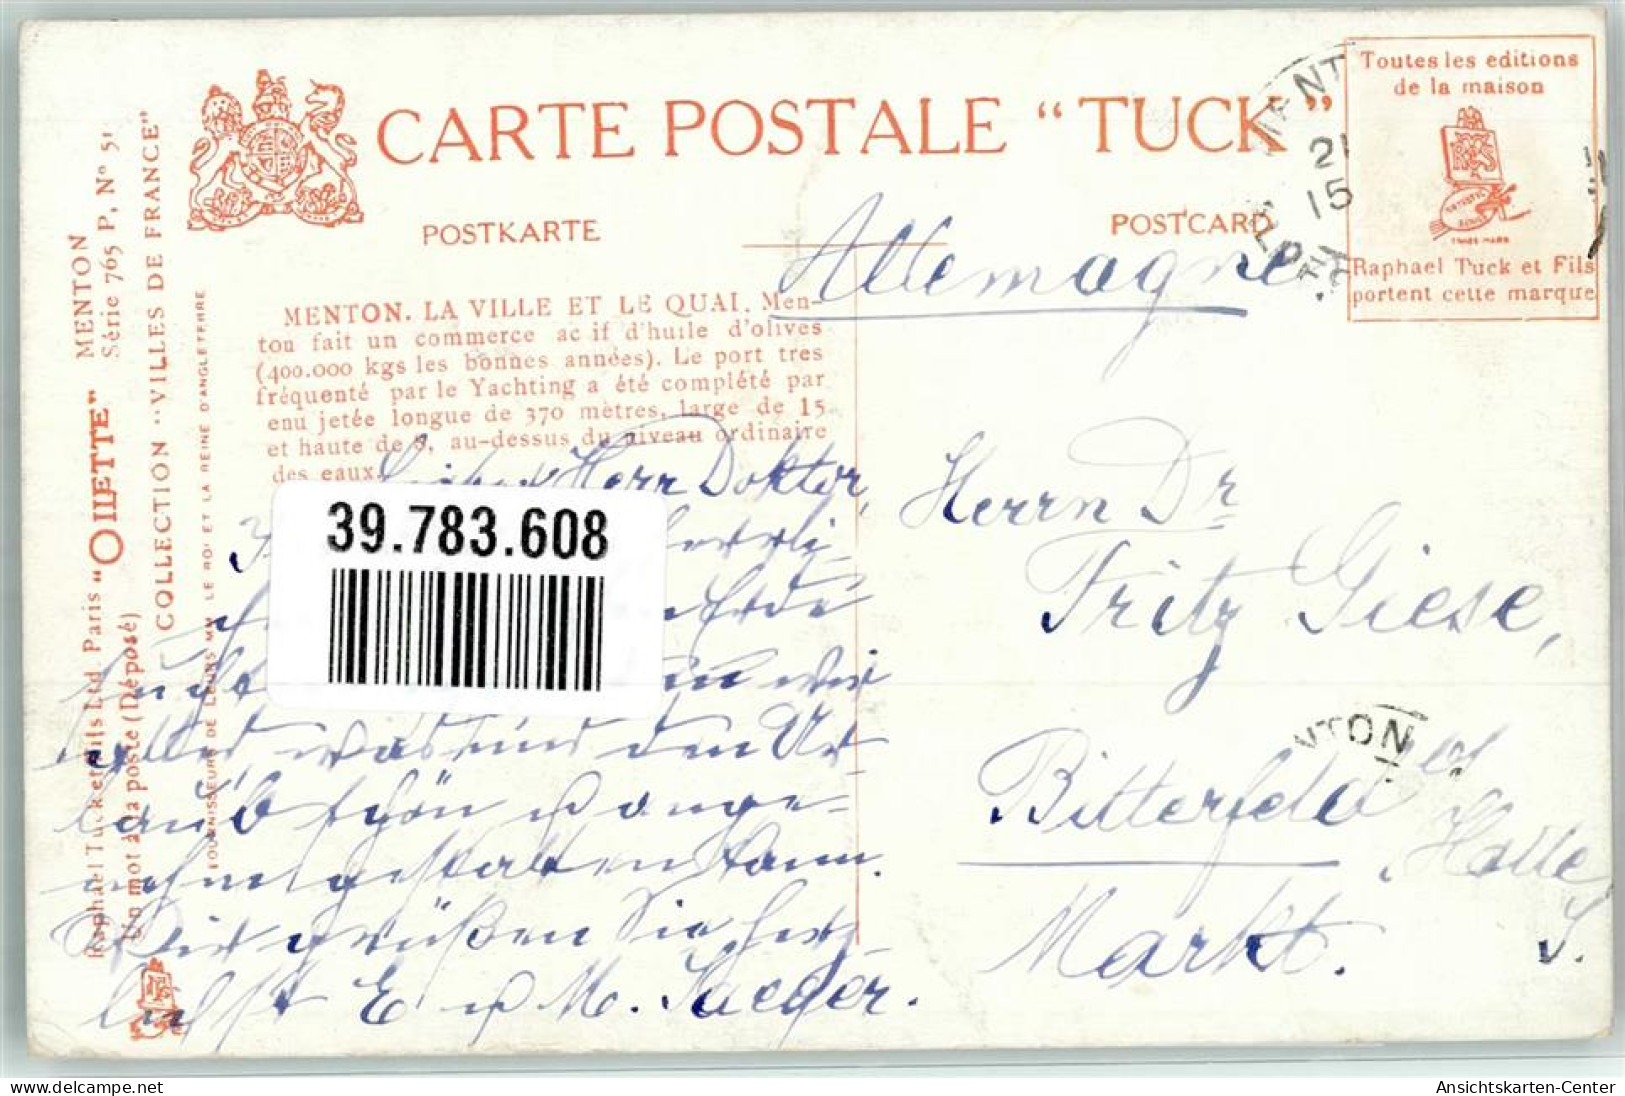 CARTE POSTALE “TUCK”
POSTKARTE
POSTCARD
Toutes les editions
de la maison
TRADE MARK
Raphael Tuck et Fils
portent cette marque
MANT
21
15
ALP
NTON
MENTON
Série 765 P, Nº 51
Raphael Tuck et fils Ltd Paris "OILETTE"
COLLECTION "VILLES DE FRANCE"
Un mot à la poste (Déposé)
FOURNISSEURS DE LEURS MM LE ROI ET LA REINE D'ANGLETERRE
MENTON. LA VILLE ET LE QUAI. Men-
tou fait un commerce ac if d'huile d'olives
(400.000 kgs les bonnes années). Le port tres
fréquenté par le Yachting a été complété par
enu jetée longue de 370 mètres, large de 15
et haute de 8, au-dessus du niveau ordinaire
des eaux.
39.783.608
Allemagne
Lieber Herr Doktor,
herrli-
Erde
wir
alles was uns den Ur-
laub schön u ange-
nehm gestalten kann.
Wir grüßen Sie herz-
lichst E u M. Jaeger.
Herrn Dr
Fritz Giese,
Bitterfeld
Halle
Markt.
S.
Ansichtskarten-Center
www.delcampe.net